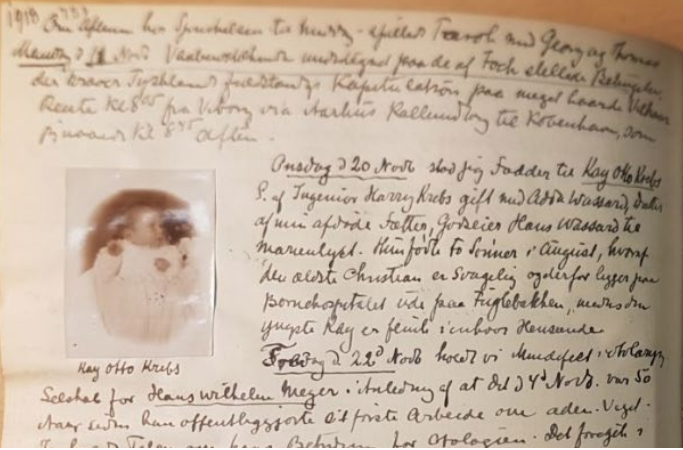 1918
Om Aftenen hos til Middag - spillede med Georg og Thomas
Mandag d 11 Nov Vaabenstilstand undertegnet paa de af Foch stillede Betingelser
der kræver Tysklands fuldstændige Kapitulation paa meget haarde Vilkaar
Reiste Kl 8 fra Viborg via Aarhus Kallundborg til København, som
Kl 8 Aften.
Onsdag d 20 Novb stod jeg Fadder til Kay Otto Krebs
S. af Ingeniør Harry Krebs gift med Wassard, Datter
af min afdøde Fætter, Godseier Hans Wassard til
Marienlyst. Hun fødte to Sønner i August, hvoraf
den ældste Christian er Svagelig og derfor ligger paa
Bornehospitalet ude paa Fuglebakken, medens den
yngste Kay er i enhver Henseende
Fredag d 22d Novb holdt vi Mindefest i Otolaryng
Kay Otto Krebs
Selskab for Hans Wilhelm Meyer i Anledning af at det d 4d Novb. var 50
Aar siden han offentliggjorte sit første Arbeide om aden. Veget.
Talen om hans Betydning for Otologien. Det foregik i